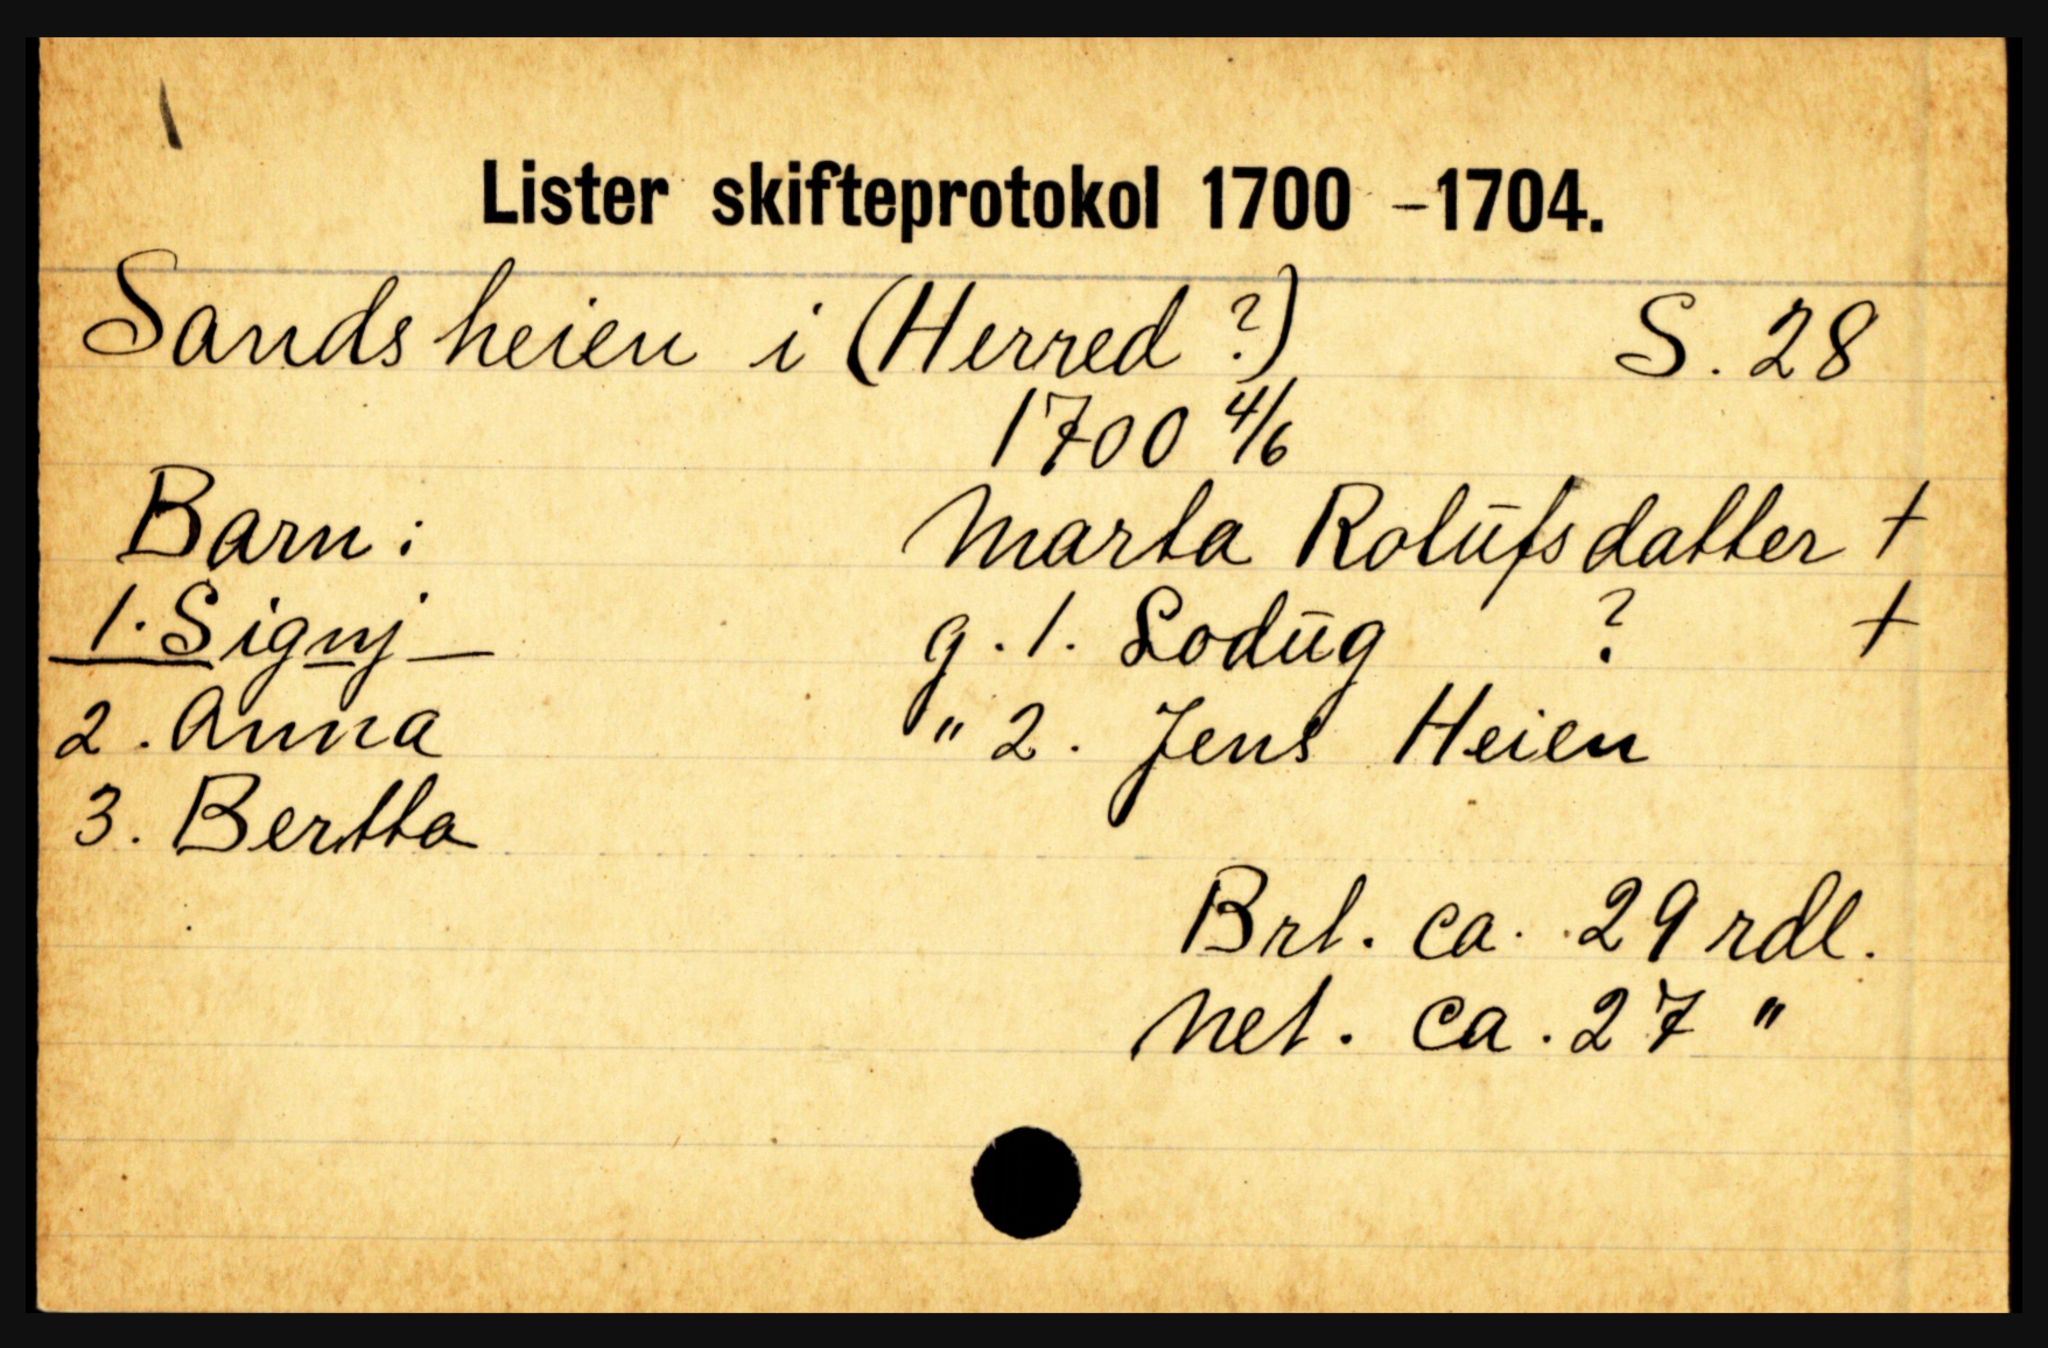 Lister skifteprotokol 1700 – 1704.
Sandsheien i (Herred ?) S. 28
1700 4/6
Barn : Marta Rolūfsdatter +
1. Signj g. 1. Lodūg ? +
2. Anna " 2. Jens Heien
3. Bertta
Brt. ca. 29 rdl.
Net. ca. 27 "